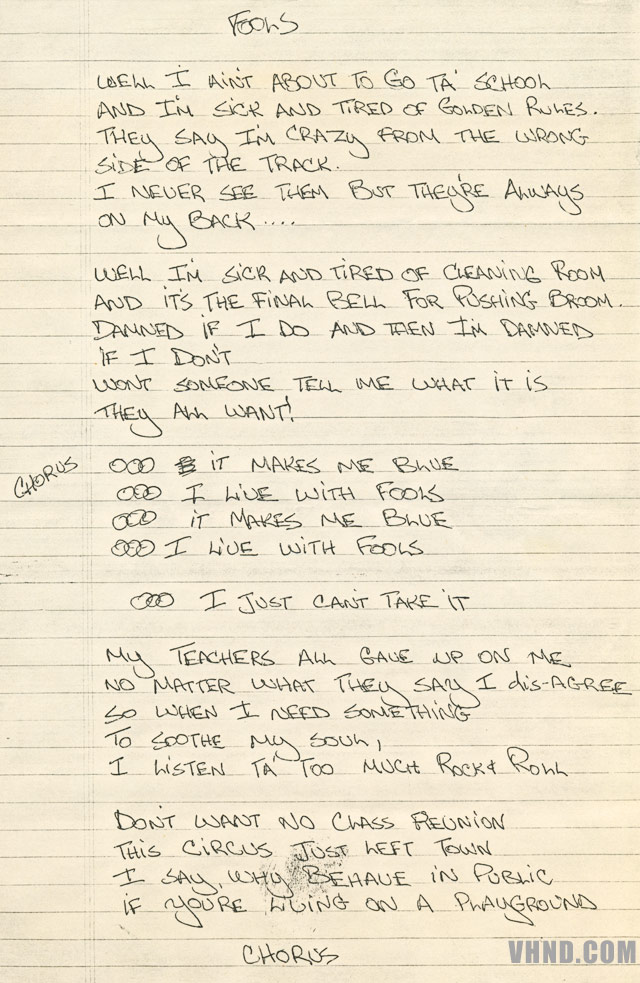 FOOLS
WELL I AIN'T ABOUT TO GO TA' SCHOOL
AND I'M SICK AND TIRED OF GOLDEN RULES.
THEY SAY I'M CRAZY FROM THE WRONG
SIDE OF THE TRACK.
I NEVER SEE THEM BUT THEY'RE ALWAYS
ON MY BACK ....
WELL I'M SICK AND TIRED OF CLEANING ROOM
AND IT'S THE FINAL BELL FOR PUSHING BROOM.
DAMNED IF I DO AND THEN I'M DAMNED
IF I DON'T
WONT SOMEONE TELL ME WHAT IT IS
THEY ALL WANT!
CHORUS
OOO IT MAKES ME BLUE
OOO I LIVE WITH FOOLS
OOO IT MAKES ME BLUE
OOO I LIVE WITH FOOLS
OOO I JUST CAN'T TAKE IT
MY TEACHERS ALL GAVE UP ON ME
NO MATTER WHAT THEY SAY I dis-AGREE
SO WHEN I NEED SOMETHING
TO SOOTHE MY SOUL,
I LISTEN TA' TOO MUCH ROCK & ROLL
DON'T WANT NO CLASS REUNION
THIS CIRCUS JUST LEFT TOWN
I SAY, WHY BEHAVE IN PUBLIC
IF YOU'RE LIVING ON A PLAYGROUND
CHORUS
VHND.COM